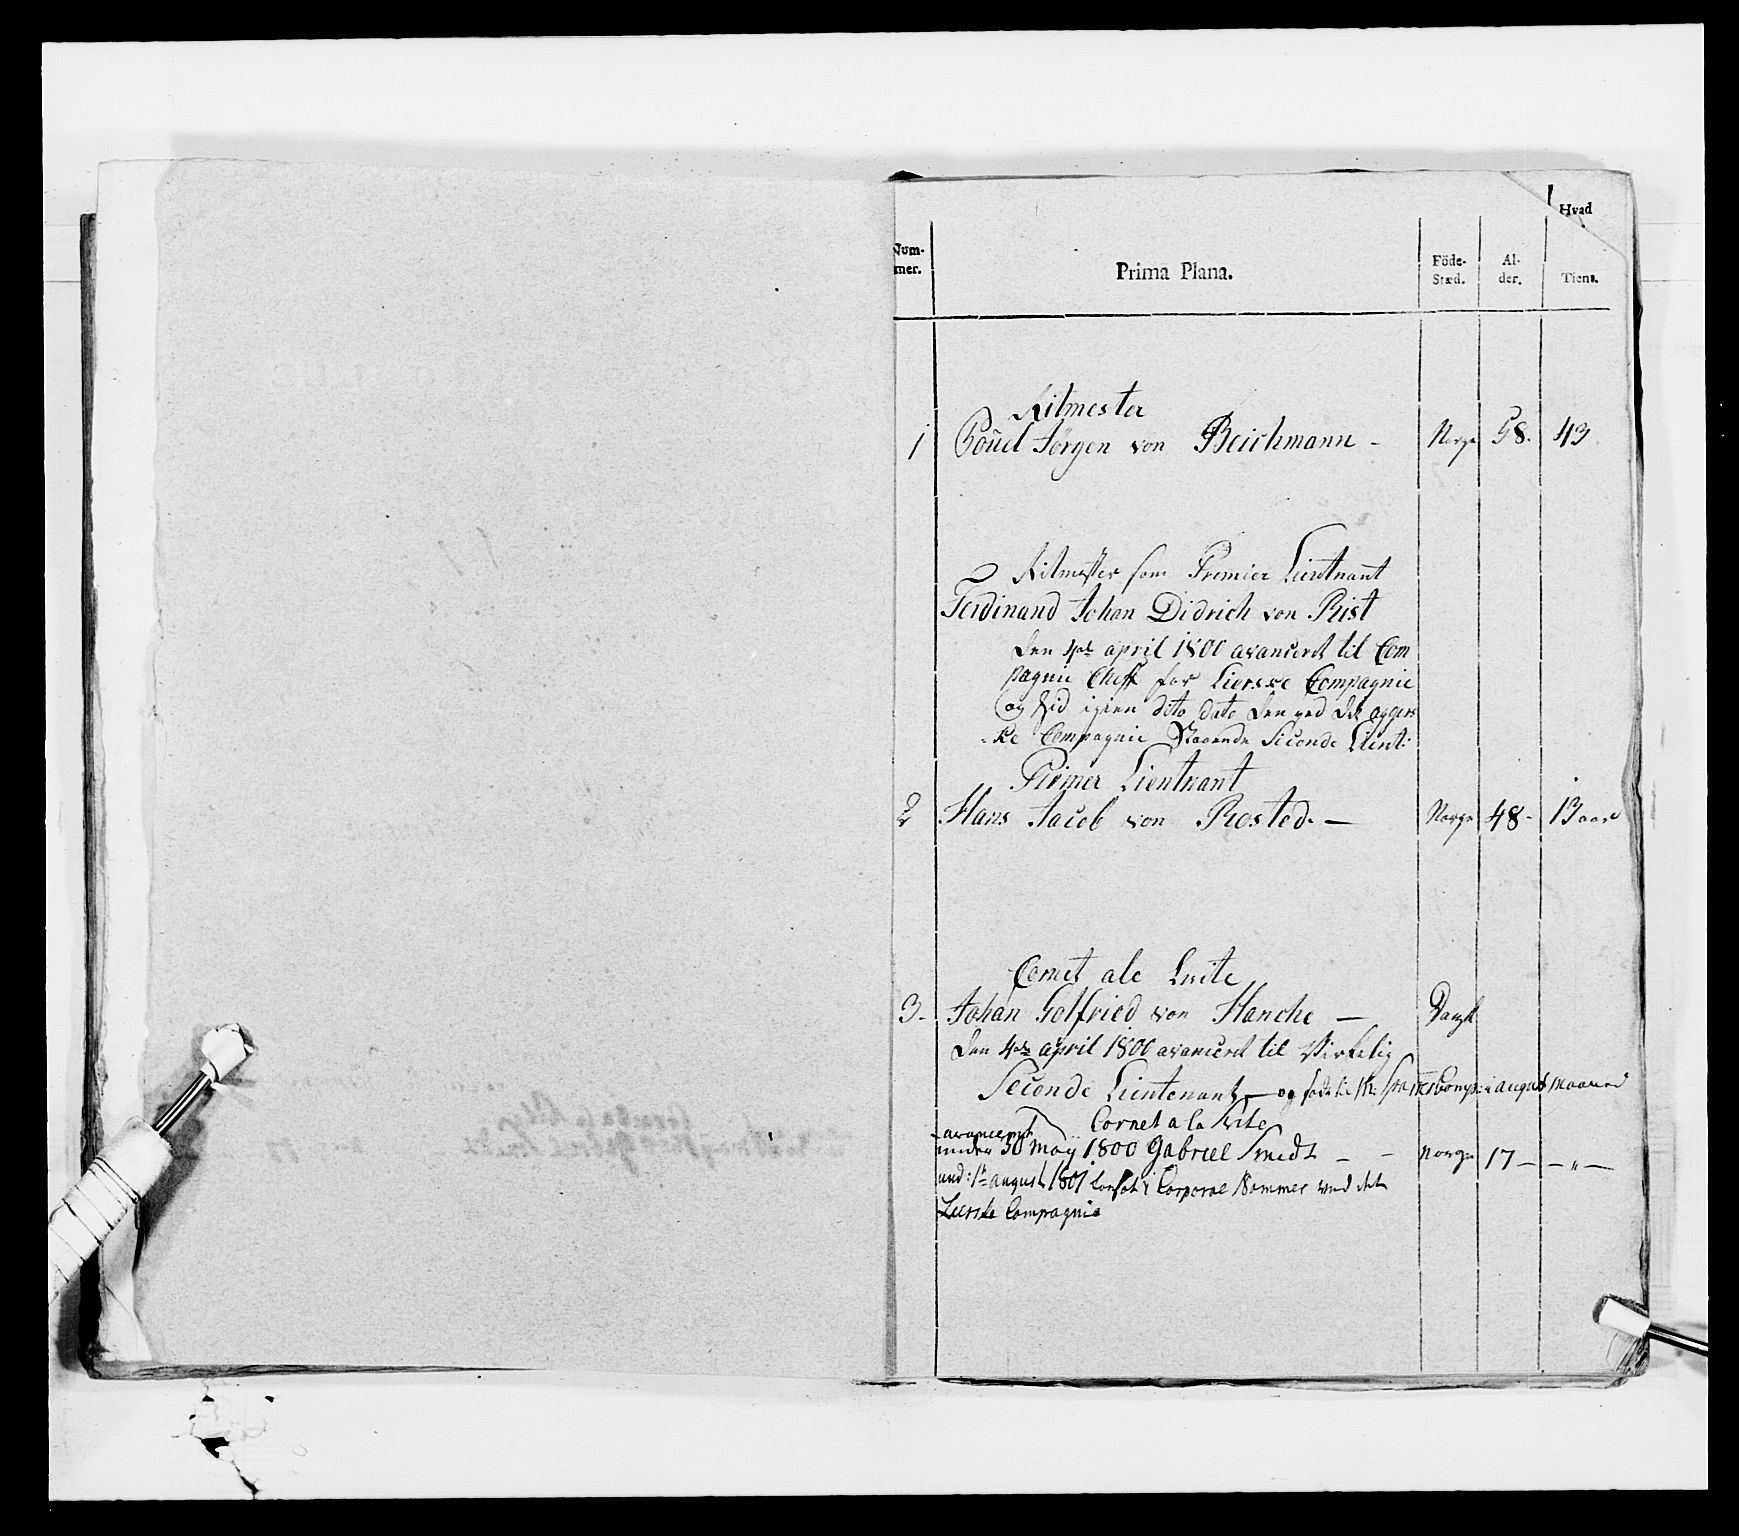 Hvad
Num-
mer.
Prima Plana.
Föde-
Stæd.
Al-
der.
Tient.
Ritmester
1 Pouel Jørgen von Beichmann - Norge 58. 43
Ritmester som Premier Lieutnant
Ferdinand Johan Didrich von Rist
den 4de april 1800 avanceret til Com
pagnie Cheff for Lierske Compagnie
og igien dito dato den ved det agers
ke Compagnie Staaende Seconde Lieut:
Primer Lieutnant
2 Hans Jacob von Rosted. — Norge 48- 13 aar
Cornet ale Suite
3. Johan Gotfried von Hanche — Dansk
den 4de april 1800 avanceret til Virkelig
Seconde Lieutenant — og august maaned
Cornet a la Suite
avancerede
under 30 may 1800 Gabriel Smedt — - Norge 17 — — „ —
und: 1te august 1801 Corporal Nommer ved det
Lierske Compagnie